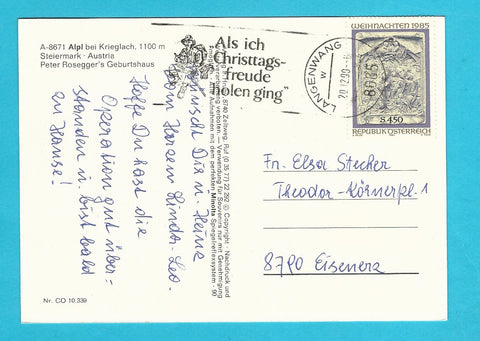 A-8671 Alpl bei Krieglach, 1100 m
Steiermark · Austria
Peter Rosegger's Geburtshaus
Als ich
Christtags-
freude
holen ging"
LANGENWANG
20.12.90
8665
WEIHNACHTEN 1985
S 4.50
REPUBLIK ÖSTERREICH
wünscht Dir u. Heine
vom Herzen Lindor. Leo.
Hoffe Du hast die
Operation gut über-
standen u. bist bald
zu Hause!
8740 Zeltweg, Ruf (0 35 77) 22 292 © Copyright - Nachdruck und
Verwendung für Souvenirs nur mit Genehmigung
Aufnahmen mit dem perfekten Minolta Spiegelreflexsystem - 90
Fr. Elsa Stecher
Theodor-Körnerpl. 1
8790 Eisenerz
Nr. CO 10.339